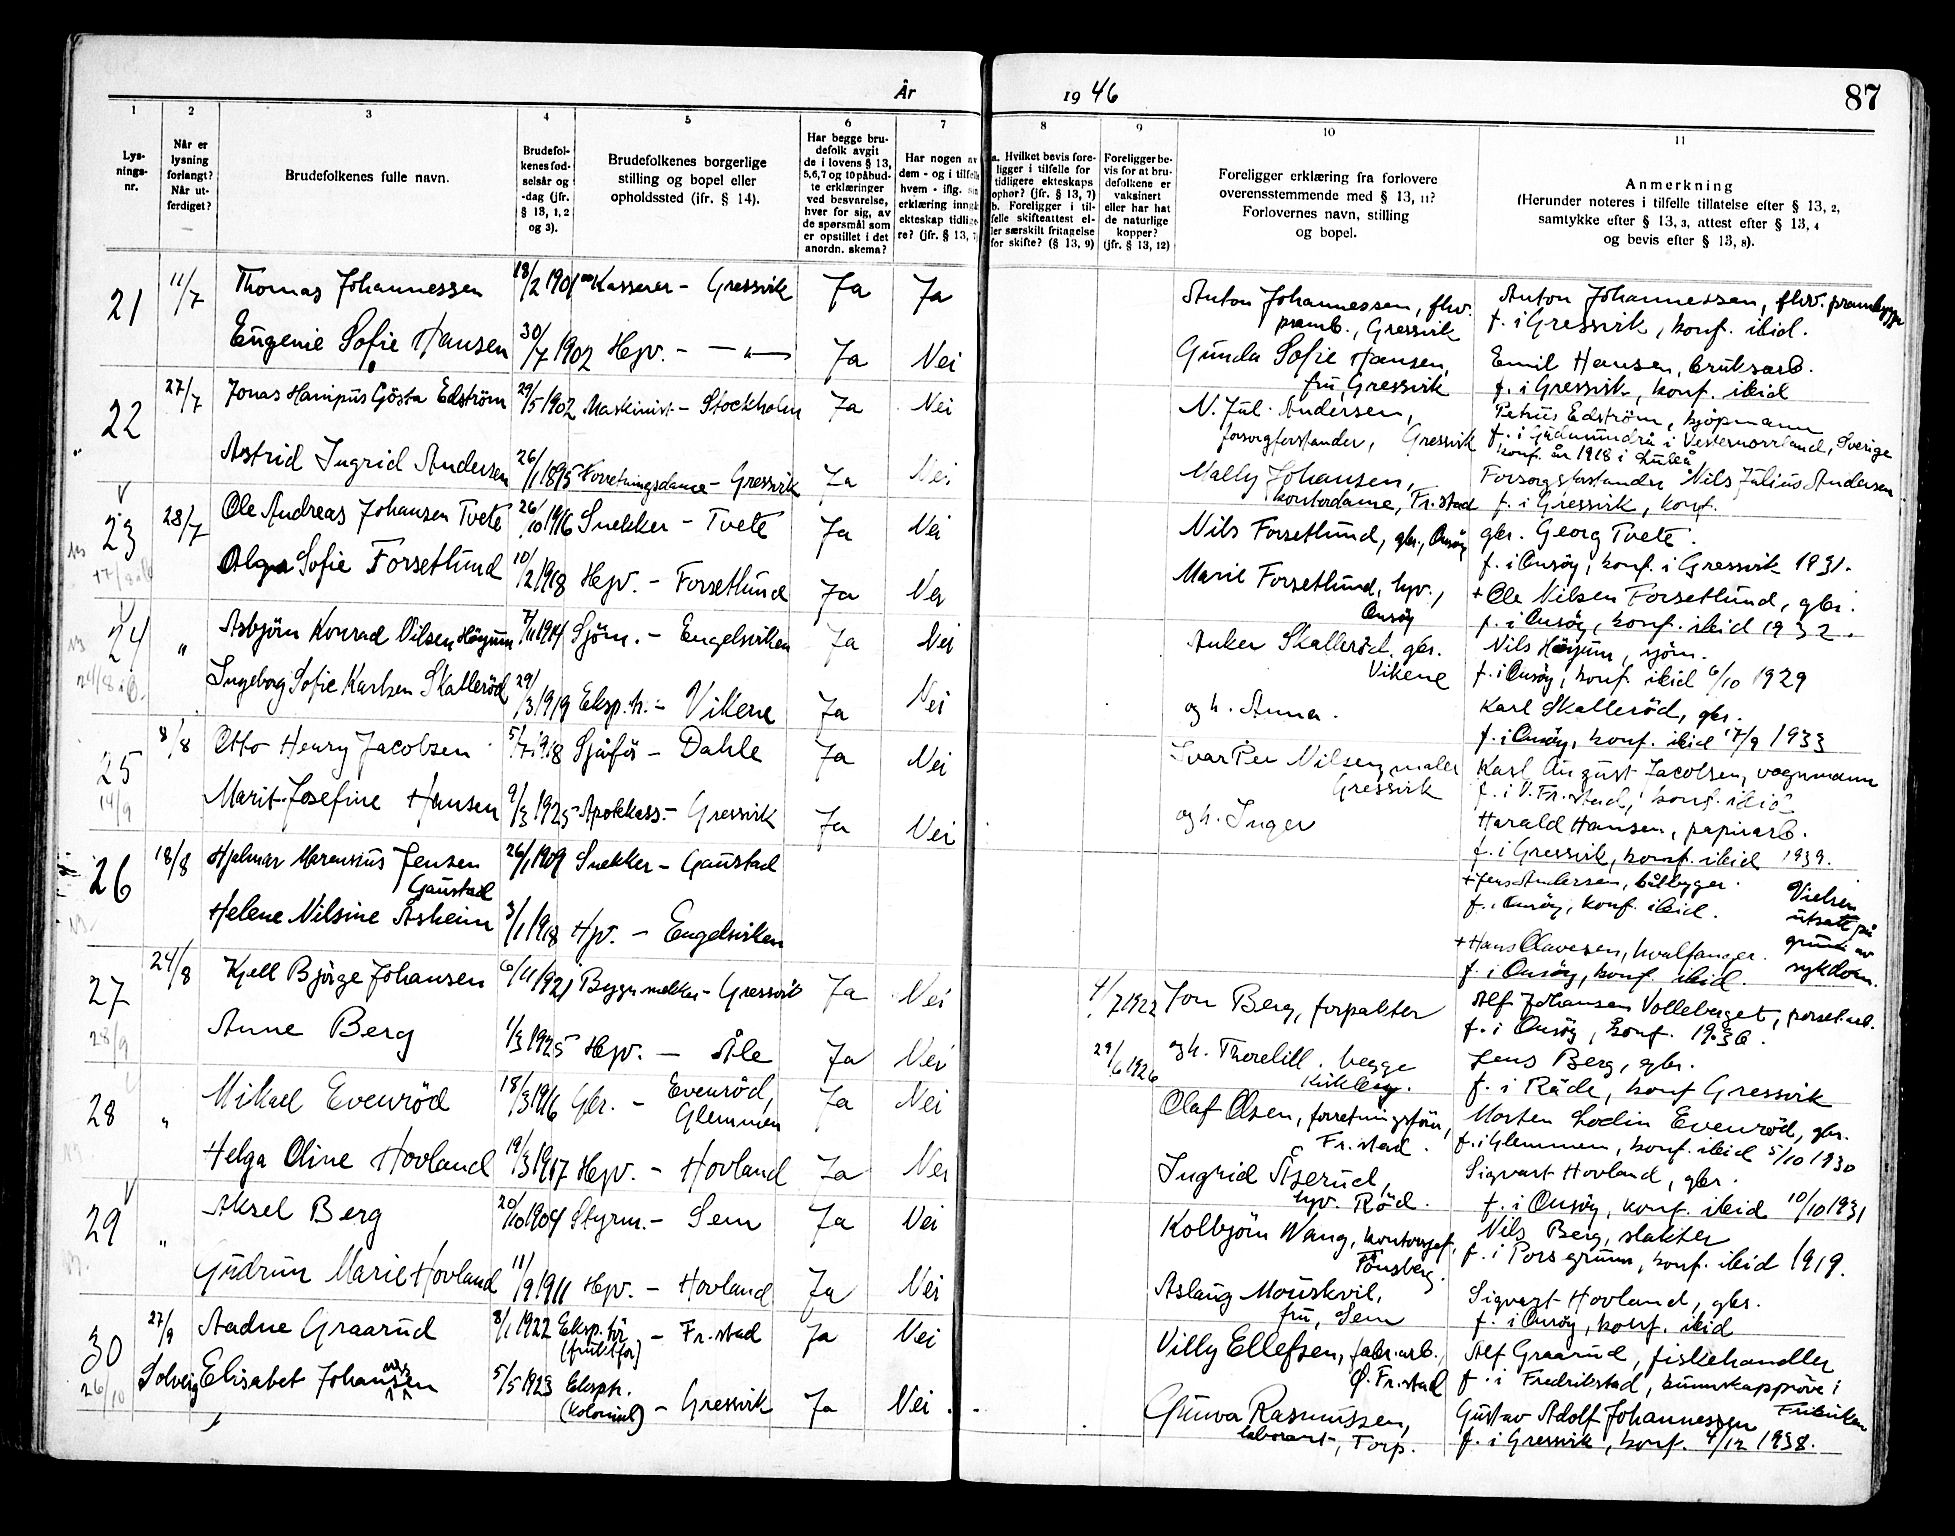 År 1946
87
1 2 3 4 5 6 7 8 9 10 11
Lys-
nings-
nr.
Når er
lysning
forlangt?
Når ut-
ferdiget?
Brudefolkenes fulle navn.
Brudefol-
kenes fød-
selsår og
-dag (jfr.
§ 13, 1, 2
og 3).
Brudefolkenes borgerlige
stilling og bopel eller
opholdssted (jfr. § 14).
Har begge bru-
defolk avgit
de i lovens § 13,
5,6,7 og 10 påbud-
te erklæringer
ved besvarelse,
hver for sig, av
de spørsmål som
er opstillet i det
anordn. skema?
Har nogen av
dem - og i tilfelle
hvem - iflg. sin
erklæring inngå
ekteskap tidlige-
re? (jfr. § 13, 7)
a. Hvilket bevis fore-
ligger i tilfelle for
tidligere ekteskaps
ophør? (jfr. § 13, 7)
b. Foreligger i til-
felle skifteattest el-
ler særskilt fritagelse
for skifte? (§ 13, 9)
Foreligger be-
vis for at bru-
defolkene er
vaksinert
eller har hat
de naturlige
kopper?
(jfr. § 13, 12)
Foreligger erklæring fra forlovere
overensstemmende med § 13, 11?
Forlovernes navn, stilling
og bopel.
Anmerkning
(Herunder noteres i tilfelle tillatelse efter § 13, 2,
samtykke efter § 13, 3, attest efter § 13, 4
og bevis efter § 13, 8).
21 11/7 Thomas Johannessen 18/2 1901 Kasserer - Gressvik Ja Ja Anton Johannessen, fhv. Anton Johannessen, fhv. prambygger
pramb., Gressvik f. i Gressvik, konf. ibid.
Eugenie Sofie Hansen 30/7 1902 Hjv. - — " — Ja Nei Gunda Sofie Hansen, Emil Hansen, bruksarb.
fru, Gressvik f. i Gressvik, konf. ibid
22 27/7 Jonas Hampus Gösta Edström 29/5 1902 Maskinist - Stockholm Ja Nei N. Jul. Andersen, Petrus Edström, kjöpmann
forsorgforstander, Gressvik f. i Gudmundrå i Vesternorrland, Sverige
konf. år 1918 i Luleå
Astrid Ingrid Andersen 26/1 1895 Forretningsdame - Gressvik Ja Nei Mally Johansen, Forsorgsforstander Nils Julius Andersen
kontordame, Fr.stad f. i Gressvik, konf.
23 28/7 Ole Andreas Johansen Tvete 26/10 1916 Snekker - Tvete Ja Nei Nils Forsetlund, gbr., Onsöy gbr. Georg Tvete
f. i Onsöy, konf. i Gressvik 1931.
Olga Sofie Forsetlund 10/2 1918 Hejv. - Forsetlund Ja Nei Marie Forsetlund, hjv., + Ole Nilsen Forsetlund, gbr.
Onsöy f. i Onsöy, konf. ibid 1932.
24 " Asbjörn Konrad Nilsen Höyum 7/11 1914 Sjöm. - Engelsviken Ja Nei Anker Skalleröd, gbr. Nils Höyum, sjöm.
24/8 Vikene f. i Onsöy, konf. ibid 6/10 1929
Ingeborg Sofie Karlsen Skalleröd 29/3 1919 Eksp.h. - Vikene Ja Nei og h. Anna. Karl Skalleröd, gbr.
f. i Onsöy, konf. ibid 17/9 1933
25 8/8 Otto Henry Jacobsen 5/7 1918 Sjåför - Dahle Ja Nei Ivar Per Nilsen, maler Karl August Jacobsen, vognmann
14/9 Gressvik f. i V. Fr.stad, konf. ibid
Marit Josefine Hansen 9/3 1925 Apotekass. - Gressvik Ja Nei og h. Inger Harald Hansen, papirarb.
f. i Gressvik, konf. ibid 1939.
26 18/8 Hjalmar Marensius Jensen 26/1 1909 Snekker - Gaustad + Jens Andersen, båtbygger.
Gaustad f. i Onsöy, konf. ibid.
Helene Nilsine Åsheim 3/1 1918 Hjv. - Engelsviken + Hans Olavesen, hvalfanger.
f. i Onsöy, konf. ibid.
Vielsen
utsatt på
grunn av
sykdom.
27 24/8 Kjell Björge Johansen 6/11 1921 Byggn.snekker - Gressvik Ja Nei 1/7 1922 Jon Berg, forpakter Alf Johansen Volleberget,
28/9 f. i Onsöy, konf. 1936.
Anne Berg 1/3 1925 Hejv. - Åle Ja Nei 29/6 1926 og h. Thorelill. begge Jens Berg, gbr.
Kirkberg. f. i Råde, konf Gressvik
28 " Mikael Evenröd 18/3 1916 Gbr. - Evenröd, Ja Nei Olaf Olsen, forretningsför, Morten Lodin Evenröd, gbr.
Glemmen Fr.stad. f. i Glemmen, konf. ibid 5/10 1930
Helga Oline Hovland 19/3 1917 Hejv. - Hovland Ja Nei Ingrid Åserud, Sigvart Hovland, gbr.
hjv. Röd. f. i Onsöy, konf. ibid 10/10 1931
29 " Aksel Berg 20/10 1904 Styrm. - Sem Ja Nei Kolbjörn Wang, kontorsjef, Nils Berg, slakter
Tönsberg. f. i Porsgrunn, konf. ibid 1919.
Gudrun Marie Hovland 11/9 1911 Hejv. - Hovland Ja Nei Aslaug Mouskvil, Sigvart Hovland, gbr.
fru, Sem f. i Onsöy, konf. ibid
30 27/9 Aadne Graarud 8/1 1922 Eksp.tör - Fr.stad Ja Nei Villy Ellefsen, fabr.arb., Alf Graarud, fiskehandler
(fruktfor) Ö. Fr.stad f. i Fredrikstad, kunnskapprøve i
26/10 Solveig Elisabet Johansen 5/5 1923 Eksptr. - Gressvik Ja Nei Gunvor Rasmussen, Gustav Adolf Johannessen
(kolonial) laborant, Torp. f. i Gressvik, konf. 4/12 1938.